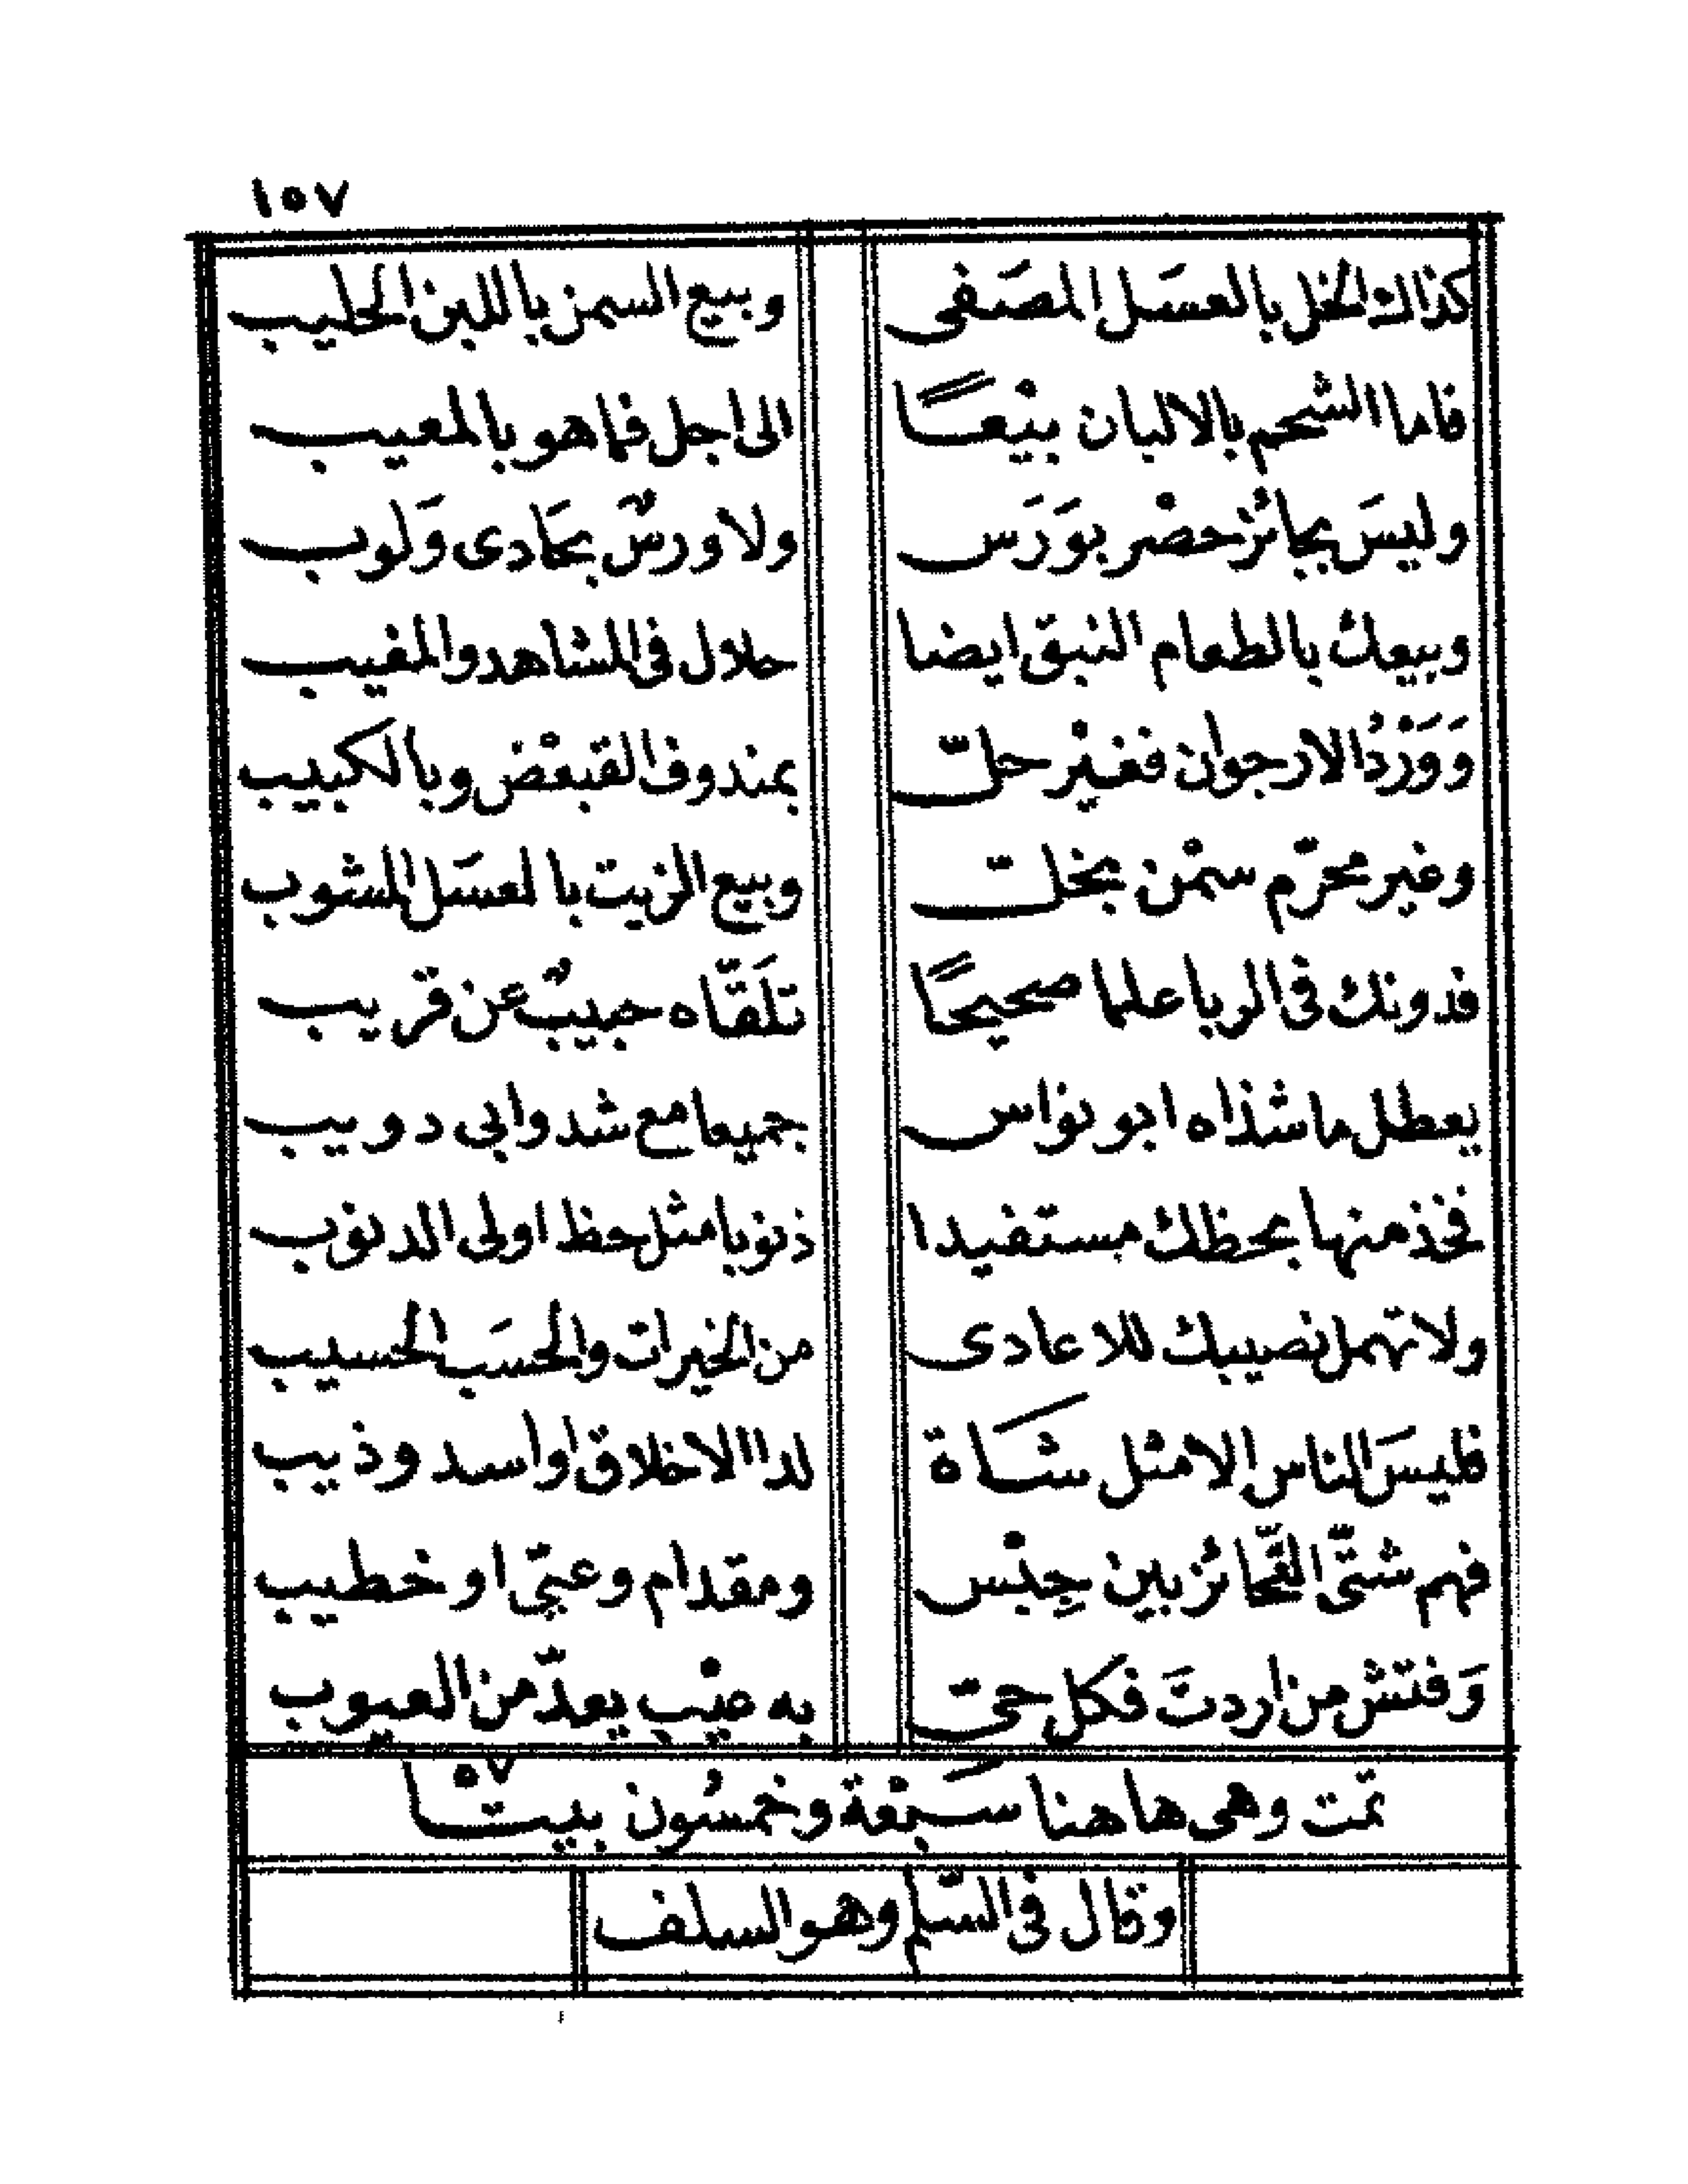 ١٥٧
كذاك الخل بالعسَل المصَفى وبيع السمن باللبن الحليب
فاما الشحم بالالبان بيْعًا الى اجل فما هو بالمعيب
وليسَ بجائز حضْر بوَرَس ولا ورسٌ بحَادى وَلوب
وبيعك بالطعام النبق ايضا حلال فى المشاهد والمغيب
وَوَرْدُ الارجوان فغيْر حلّ بمندوف القبعْض وبالكبيب
وغير محرّم سمْن بخلّ وبيع الزيت بالعسَل المشوب
فدونك فى الربا علما صحيحًا تلَقّاه حبيبٌ عن قريب
يعطل ما شذاه ابو نواس جميعا مع شدو ابى دويب
فخذ منها بحظك مستفيدا ذنوبا مثل حظ اولى الدنوب
ولا تهمل نصيبك للاعادى من الخيرات والحسَب الحسيب
فليسَ الناس الا مثل شَاة لدا الاخلاق او اسد وذيب
فهم شتّى النّحائز بين جِبْس ومقدام وعيّ او خطيب
وَفتش من اردتَ فكل حىّ به عيْب يعدّ من العيوب
تمّت وهى هاهنا سَبْعة وخمسُون بيتا ٥٧
وقال فى السّلم وهو السلف